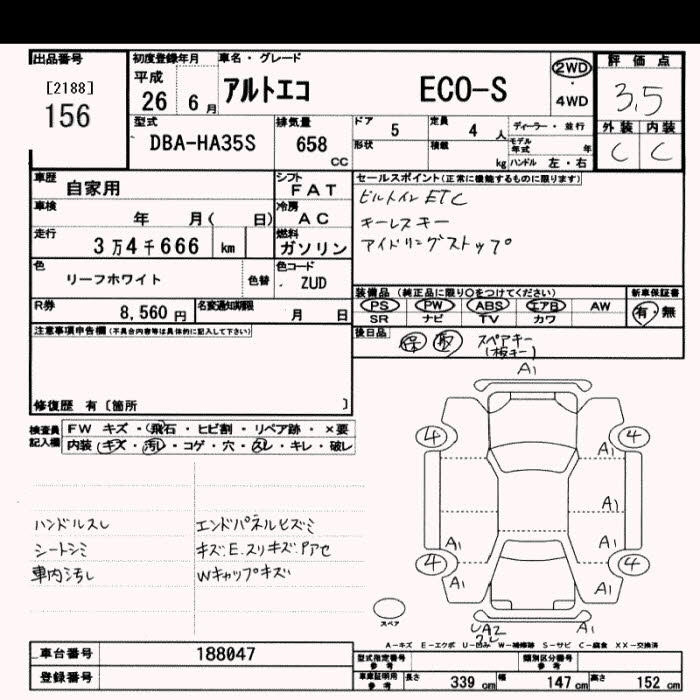 出品番号
[2188]
156
初度登録年月
平成
26 6月
車名・グレード
アルトエコ ECO-S
2WD
・
4WD
評価点
3.5
外装 内装
C C
型式
DBA-HA35S
排気量
658
CC
ドア 5
定員 4 人
ディーラー・並行
形状
積載 kg
モデル年式 年
ハンドル 左・右
車歴 自家用
シフト
FAT
車検 年 月( 日)
冷房
AC
走行 3万4千666 km
燃料
ガソリン
色 リーフホワイト
色替
色コード
ZUD
R券 8,560 円
名変通知期限 月 日
セールスポイント(正常に機能するものに限ります)
ビルトイン ETC
キーレスキー
アイドリングストップ
装備品 (純正品に限り○をつけてください)
PS PW ABS エアB AW
SR ナビ TV カワ
新車保証書
有・無
後日品 保 取 スペアキー
(板キー)
注意事項申告欄(不具合内容等は具体的に記入して下さい)
修復歴 有〔箇所 〕
検査員
記入欄
FW キズ・飛石・ヒビ割・リペア跡・×要
内装 キズ・汚れ・コゲ・穴・スレ・キレ・破レ
ハンドルスレ
シートシミ
車内汚れ
エンドパネルヒズミ
キズ.E.スリキズ.Pアセ
Wキャップキズ
A1
4 4
A1
A1
A1 A1
4 4
A1 A1
スペア
UA2 A1
A-キズ E-エクボ U-凹み W-補修跡 S-サビ C-腐食 XX-交換済
車台番号 188047
登録番号
型式指定番号
参考
類別区分番号
参考
車庫証明用
参考
長さ 339 cm 幅 147 cm 高さ 152 cm